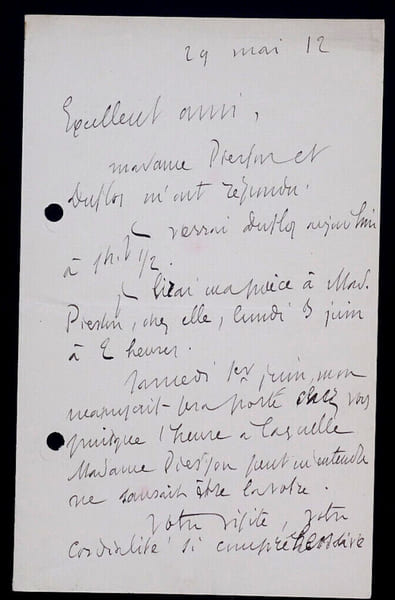 29 mai 12
Excellent ami,
madame Pierson et
Duflos m'ont répondu.
Je verrai Duflos aujourd'hui
à 5h. 1/2.
Je lirai ma pièce à Mad.
Pierson, chez elle, lundi 3 juin
à 2 heures.
Samedi 1er juin, mon
manuscrit sera porté chez vous
puisque l'heure à laquelle
Madame Pierson peut m'entendre
ne saurait être la vôtre.
Votre visite, votre
cordialité si compréhensive